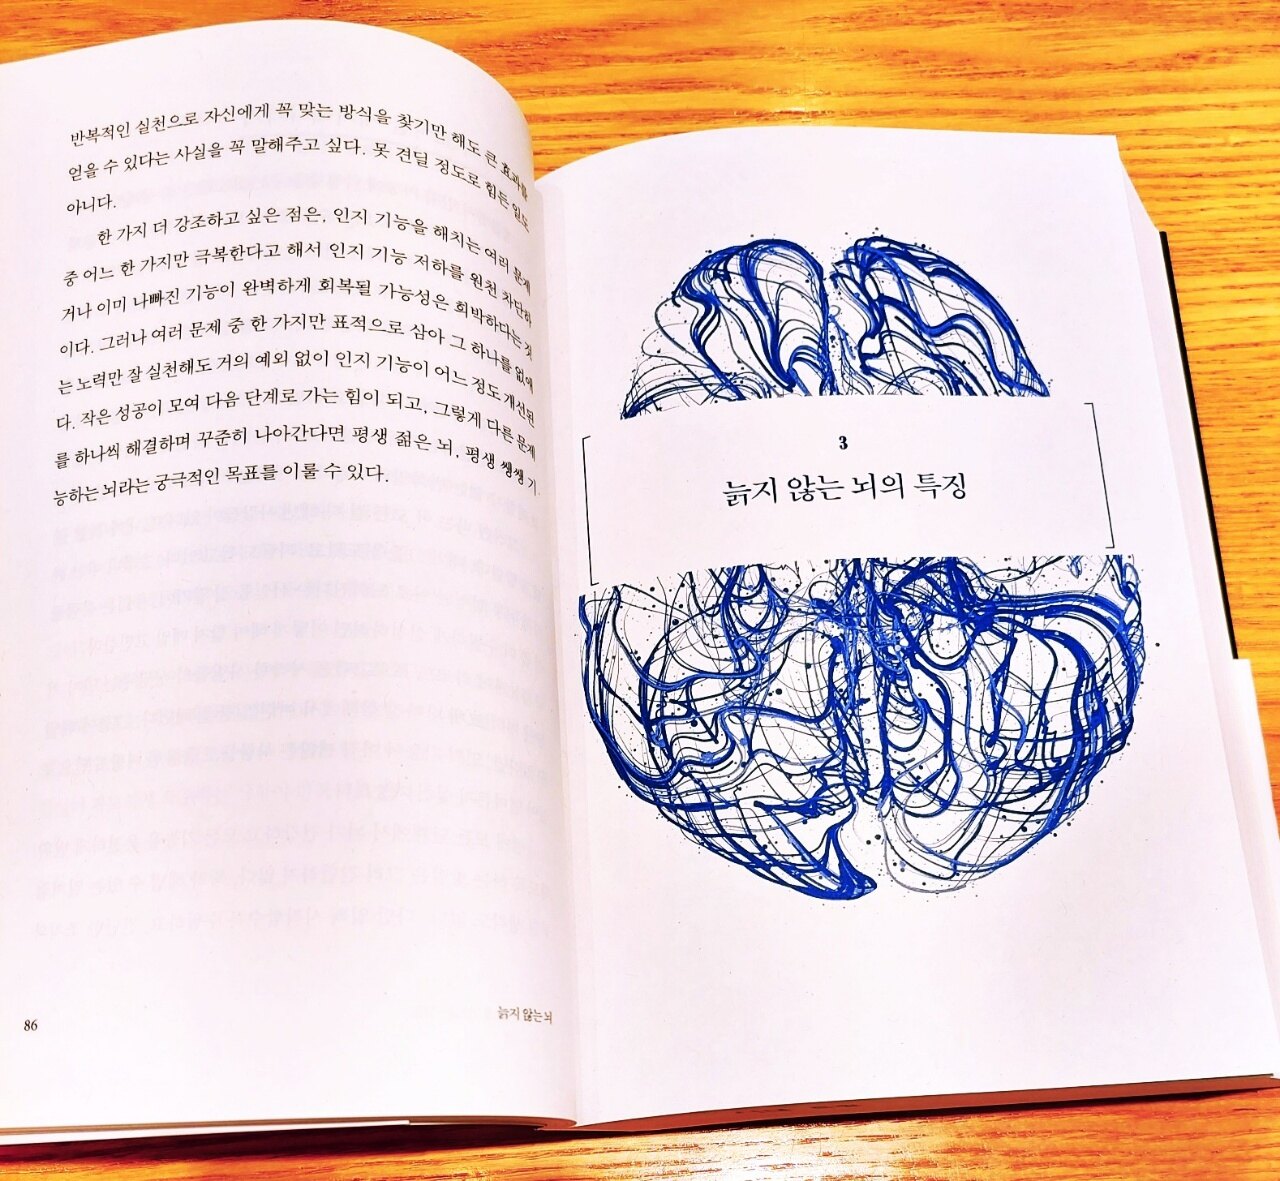 반복적인 실천으로 자신에게 꼭 맞는 방식을 찾기만 해도 큰 효과를
얻을 수 있다는 사실을 꼭 말해주고 싶다. 못 견딜 정도로 힘든 일도
아니다.
한 가지 더 강조하고 싶은 점은, 인지 기능을 해치는 여러 문제
중 어느 한 가지만 극복한다고 해서 인지 기능 저하를 원천 차단하
거나 이미 나빠진 기능이 완벽하게 회복될 가능성은 희박하다는 것
이다. 그러나 여러 문제 중 한 가지만 표적으로 삼아 그 하나를 없애
는 노력만 잘 실천해도 거의 예외 없이 인지 기능이 어느 정도 개선된
다. 작은 성공이 모여 다음 단계로 가는 힘이 되고, 그렇게 다른 문제
를 하나씩 해결하며 꾸준히 나아간다면 평생 젊은 뇌, 평생 쌩쌩 기
능하는 뇌라는 궁극적인 목표를 이룰 수 있다.
86
늙지 않는 뇌
3
늙지 않는 뇌의 특징